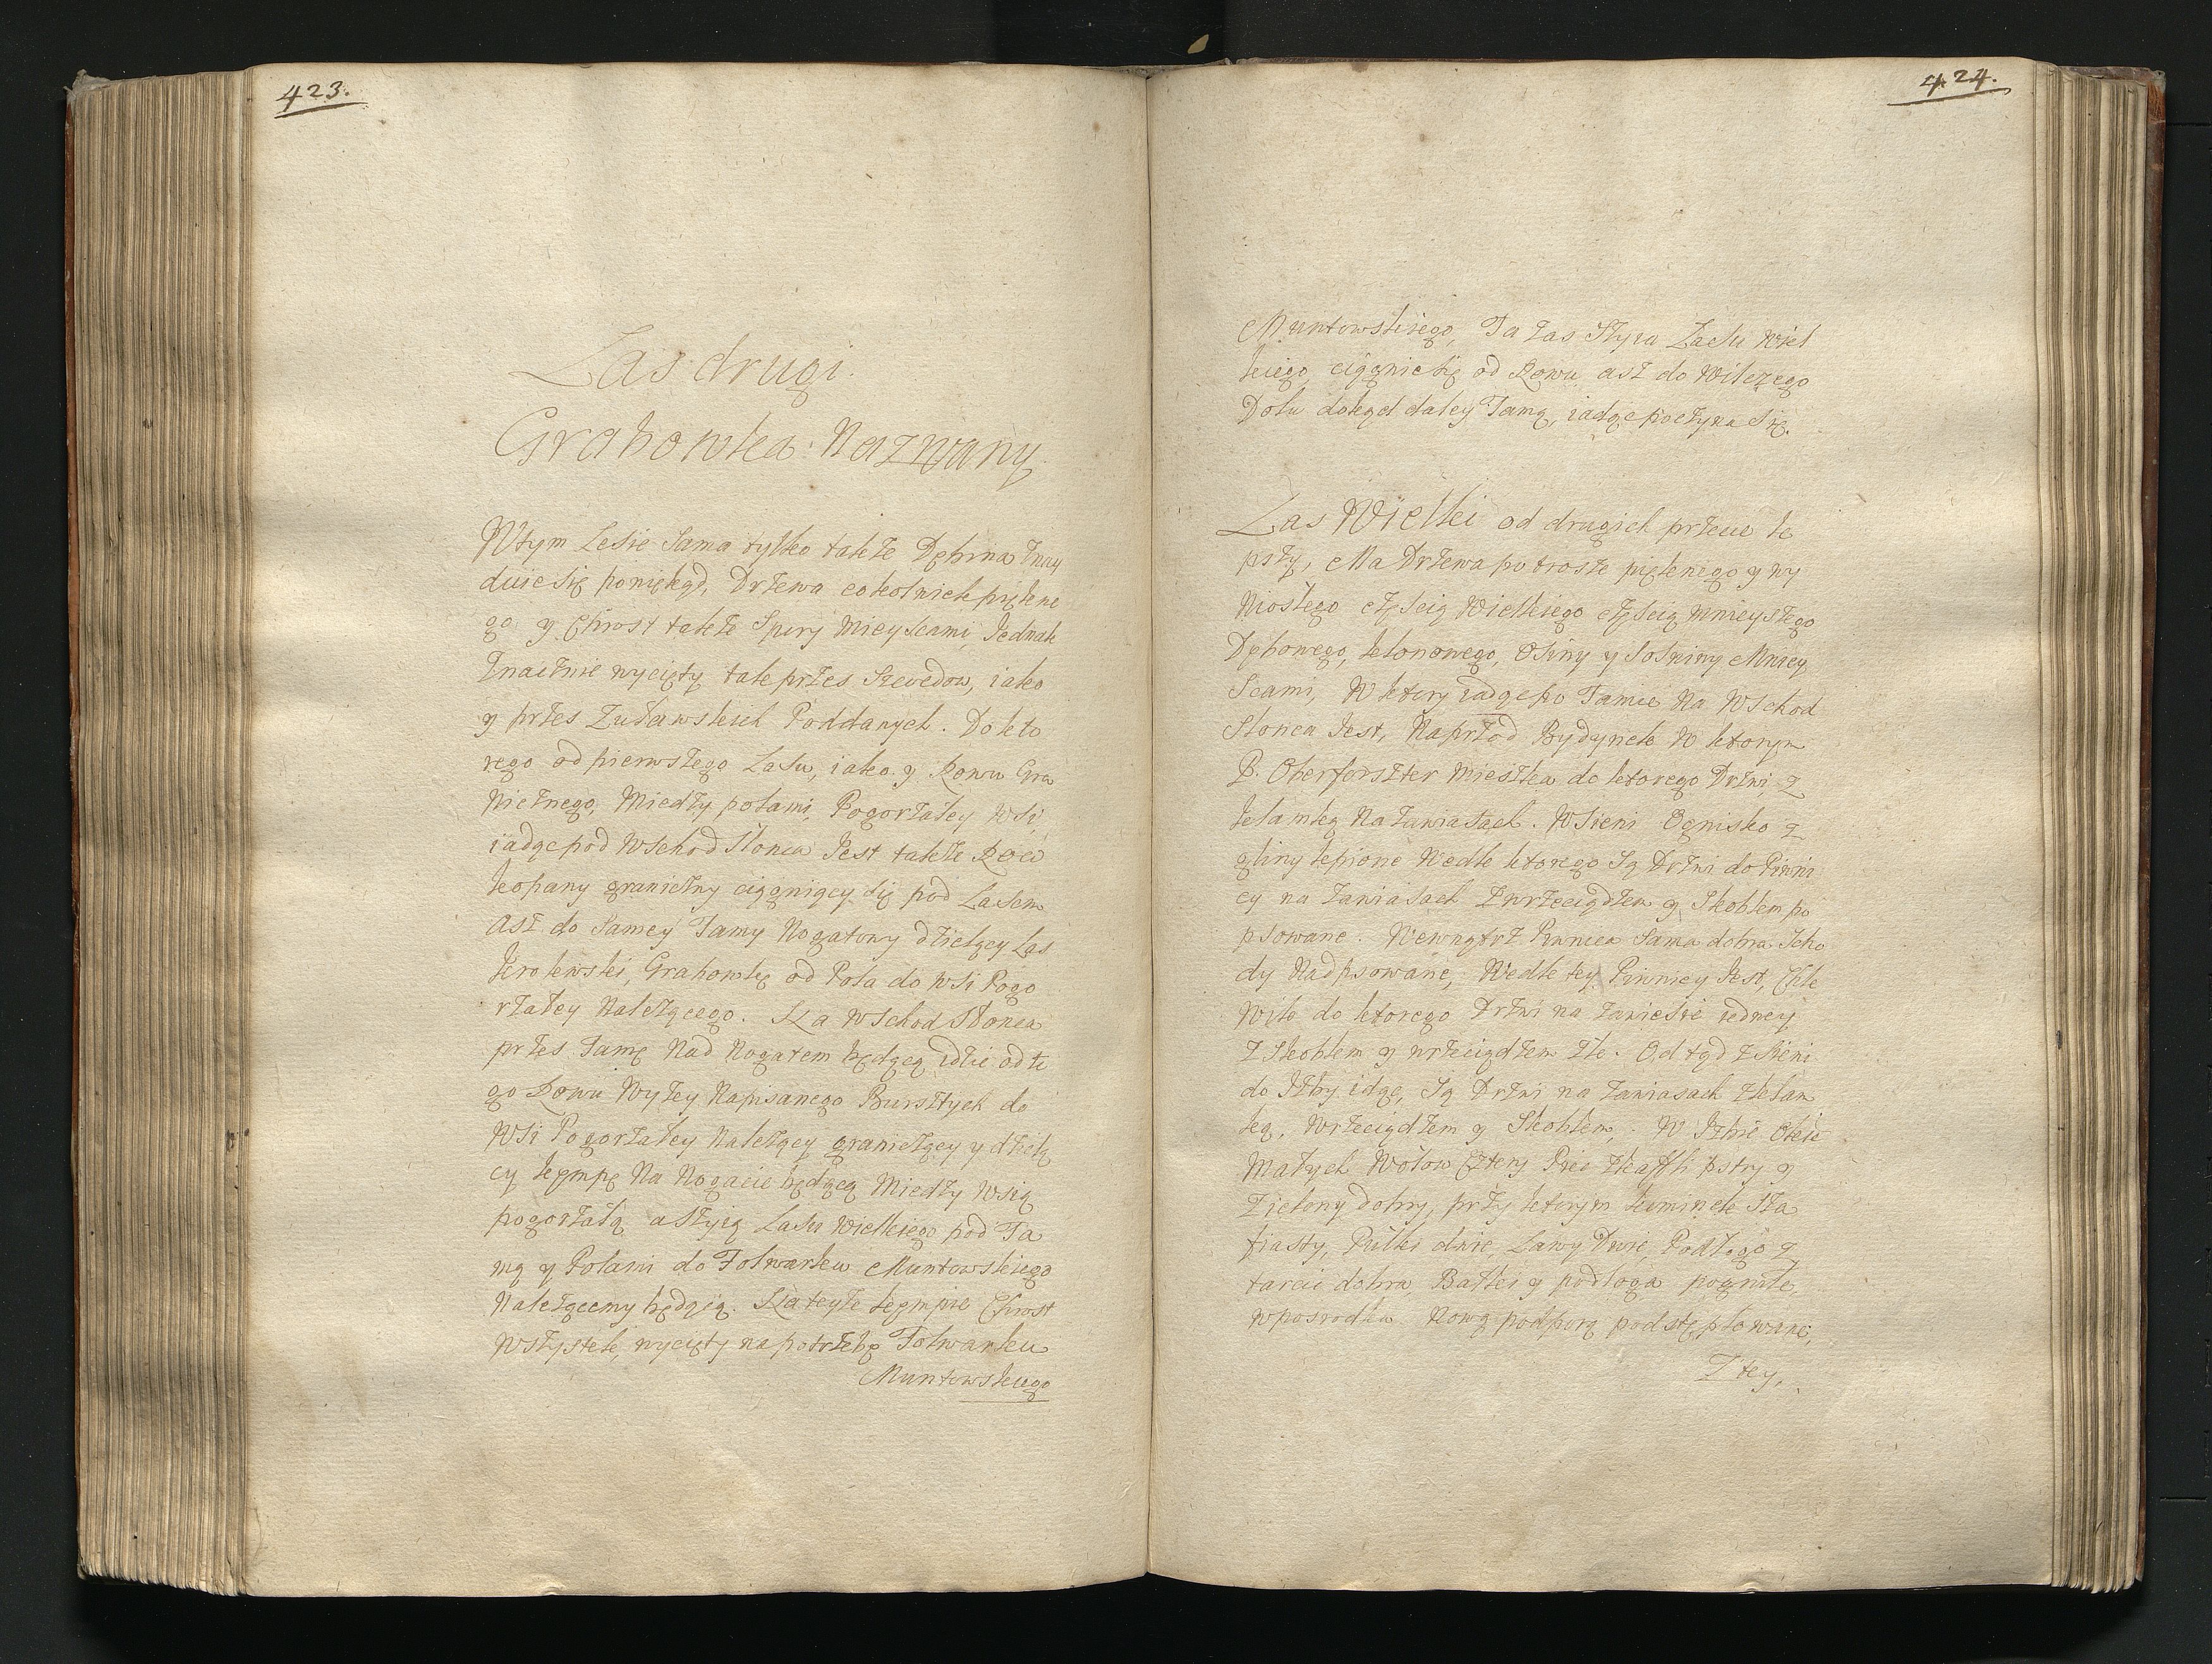 423.
Las drugi.
Grabowka Nazwany
W tym Lesie Sama tylko takze Dębina znay
duie się poniekąd, Drzewa cokolwiek piękne
go y Chrost takze Spiry Mieyscami, Jednak
Znacznie wycięty tak przes Szwedow, iako
y przes Zuławskich Poddanych. Do kto
rego od pierwszego Lasu, iako y Rowu Gra
Nicznego, Miedzy polami, Pogorzałey Wsi,
iadąc pod Wschod Słonca Jest takze Row
kopany graniczny ciągniący się pod Lasem
asz do Samey Tamy Nogatowy dzielący Las
Krolewski, Grabowkę od Pola do Wsi Pogo
rzałey Nalezącego. Na Wschod Słonca
przes Tamę Nad Nogatem będącą idzie od te
go Rowu Wyzey Napisanego Bursztych do
Wsi Pogorzałey Nalezący graniczący y dzielą
cy kępmpę Na Nogacie będącą Miedzy Wsią
pogorzałą a Szyią Lasu Wielkiego pod Ta
mą y Polami do Folwarku Muntowskiego
Nalezącemy będącą. Na teyze kępmpie Chrost
Wszystek, wycięty na potrzebę Folwarku
Muntowskiego
424.
Muntowskiego, Ta zas Szyia Lasu Wiel
kiego, ciągnie się od Rowu asz do Wilczego
Dołu dokąd daley Tamą, iadąc poczyna się.
Las Wielki od drugich przecie le
pszy, Ma Drzewa po trosze pięknego y wy
Niosłego częscią Wielkiego częscią mnieyszego
Dębowego, klonowego, Osiny y Sosniny Mniey
Scami, W ktory iadąc po Tamie Na Wschod
Słonca Jest, Naprzod Bydynek W ktorym
P. Oberforszter Mieszka do ktorego Drzwi z
klamką Na zawiasach. W Sieni Ognisko z
gliny lepione Wedle ktorego Są Drzwi do Piwni
cy na zawiasach z wrzeciądzem y Skoblem po
psowane. Wewnątrz Piwnica Sama dobra Scho
dy Nadpsowane, Wedle tey Piwnicy Jest, Chle
wik do ktorego Drzwi na zawiesie iedney
z Skoblem y wrzeciądzem złe. Od tąd z Sieni
do Izby idąc, Są Drzwi na zawiasach z klam
ką, Wrzeciądzem y Skoblem,. W Izbie Okie
Małych Wołow Cztery Piec z kaffli pstry y
zielony dobry, przy ktorym kominek Sza
fiasty, Pułki dwie, Ławy Dwie, Podłoga z
tarcic dobra, Balki y podłoga pogniłe,
wposrodku Nową podporą podstęplowane,
Z tey,